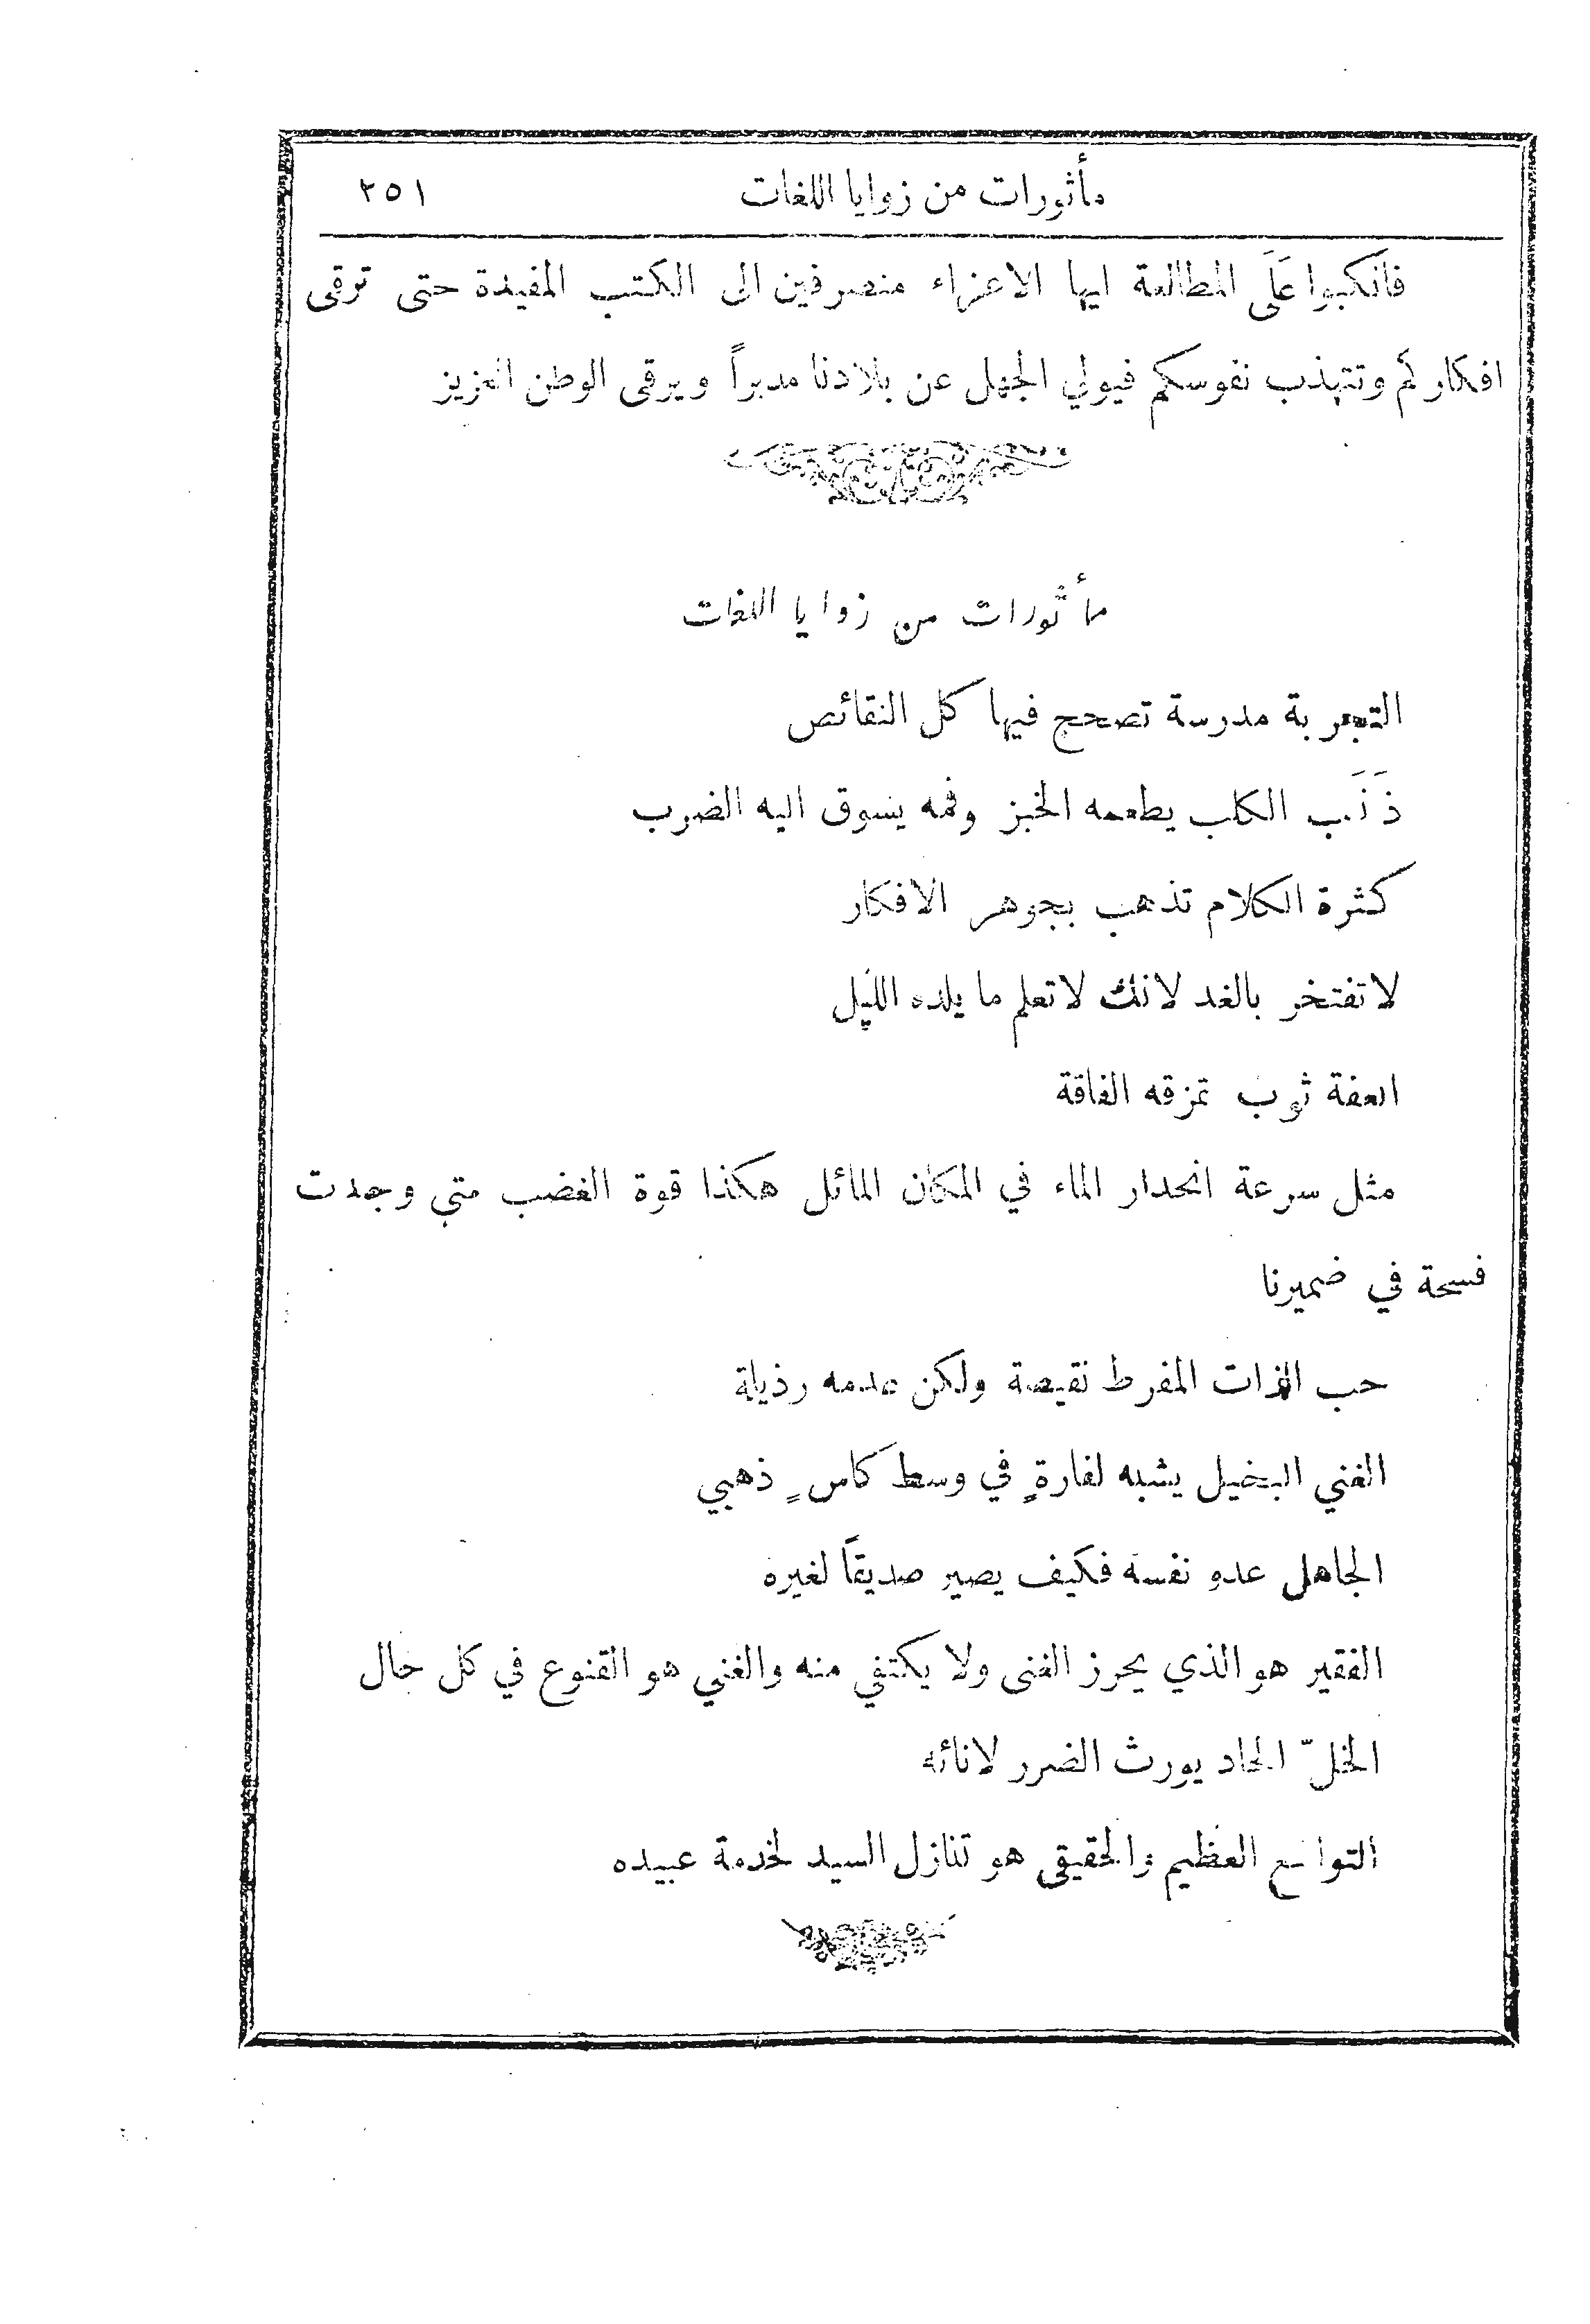 مأثورات من زوايا اللغات ٢٥١
فانكبوا عَلَى المطالعة ايها الاعزاء منصرفين الى الكتب المفيدة حتى ترقى
افكاركم وتتهذب نفوسكم فيولي الجهل عن بلادنا مدبراً ويرقى الوطن العزيز
مأثورات من زوايا اللغات
التجربة مدرسة تصحح فيها كل النقائص
ذَنَب الكلب يطعمه الخبز وفمه يسوق اليه الضرب
كثرة الكلام تذهب بجوهر الافكار
لا تفتخر بالغد لانك لا تعلم ما يلده الليل
العفة ثوب تمزقه الفاقة
مثل سرعة انحدار الماء في المكان المائل هكذا قوة الغضب متى وجدت
فسحة في ضميرنا
حب الذات المفرط نقيصة ولكن عدمه رذيلة
الغني البخيل يشبه لفارةٍ في وسط كاسٍ ذهبي
الجاهل عدو نفسه فكيف يصير صديقاً لغيره
الفقير هو الذي يحرز الغنى ولا يكتفي منه والغني هو القنوع في كل حال
الخلّ الحاد يورث الضرر لانائه
التواضع العظيم والحقيقي هو تنازل السيد لخدمة عبيده